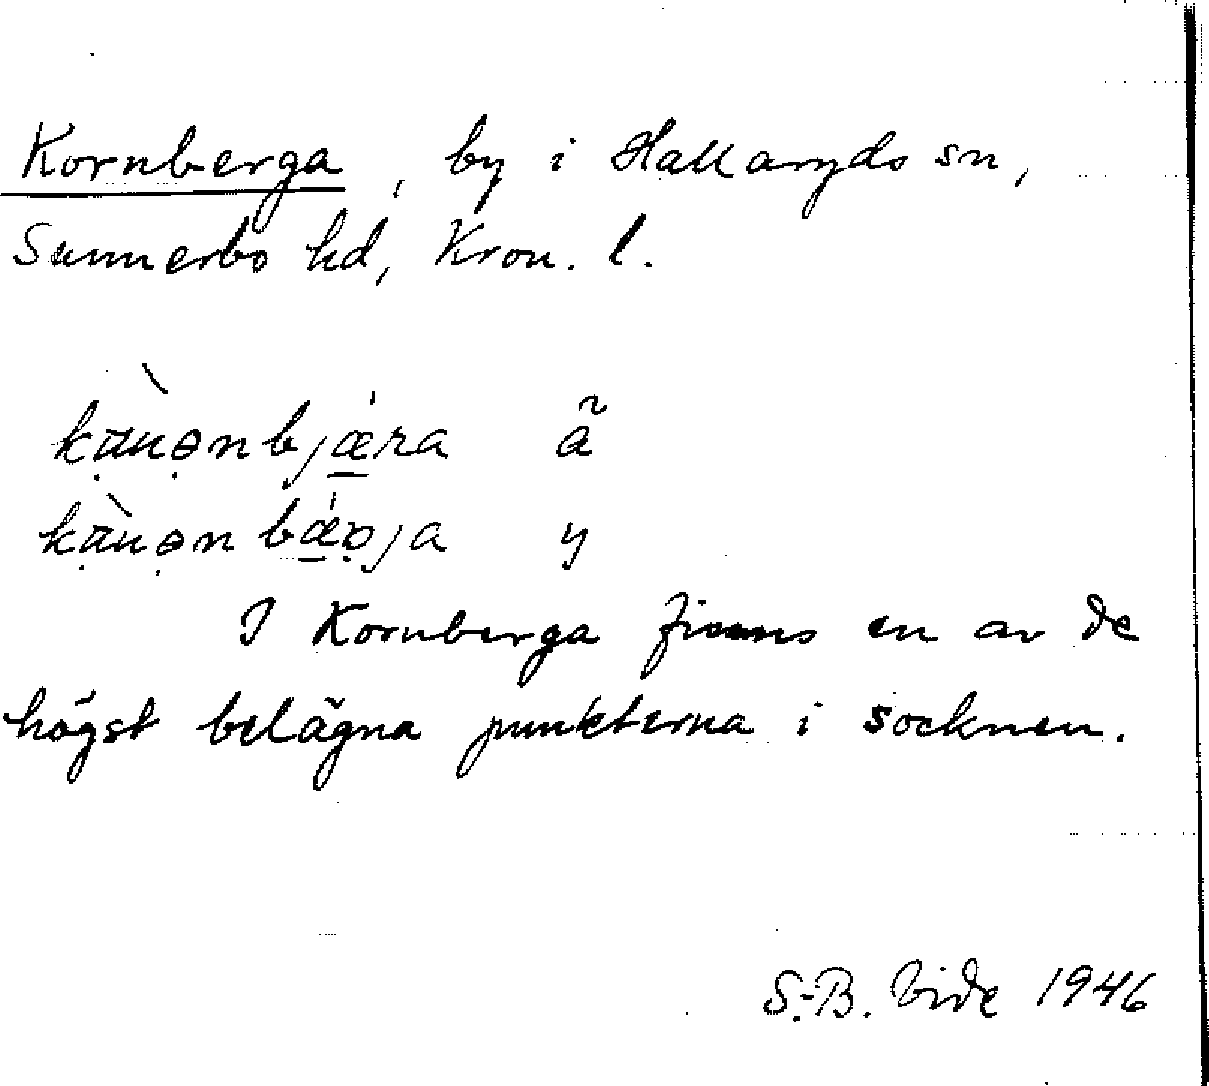 Kornberga, by i Hallaryds sn,
Sunnerbo hd, Kron. l.
ã
y
I Kornberga finns en av de
högst belägna punkterna i socknen.
S.-B. Vide 1946